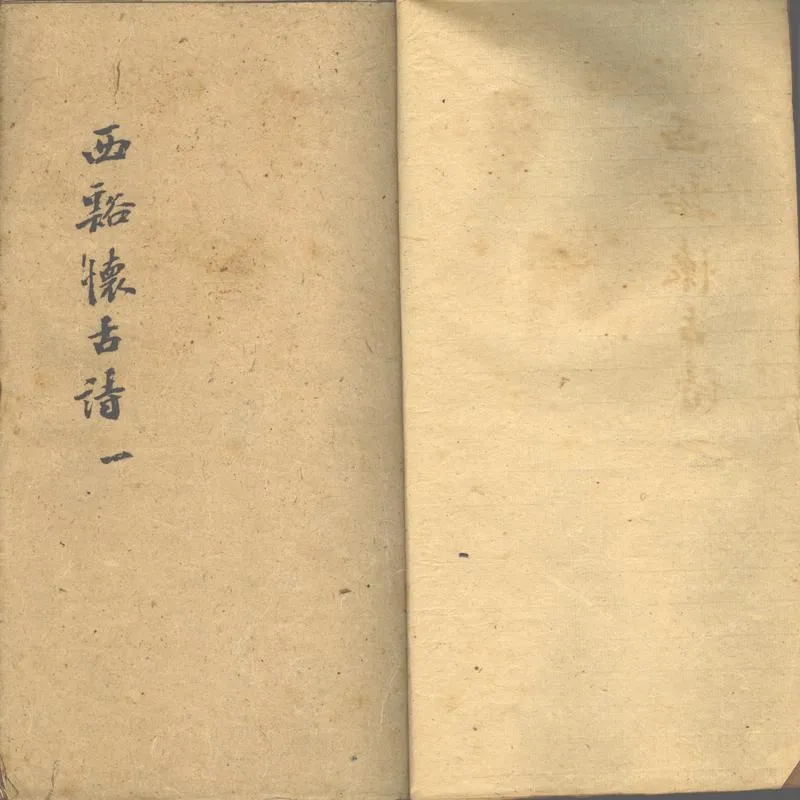 西谿懷古詩 一